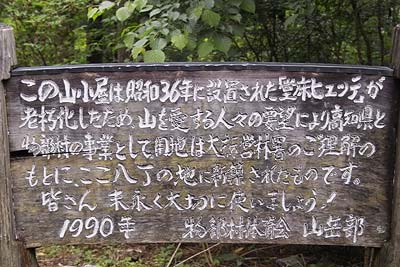 この山小屋は昭和36年に設置された「堂床ヒュッテ」が
老朽化したため、山を愛する人々の要望により高知県と
物部村の事業として用地は大栃営林署のご理解の
もとに、ここ八丁の地に新築されたものです。
皆さん 末永く大切に使いましょう!
1990年 物部村体育会 山岳部